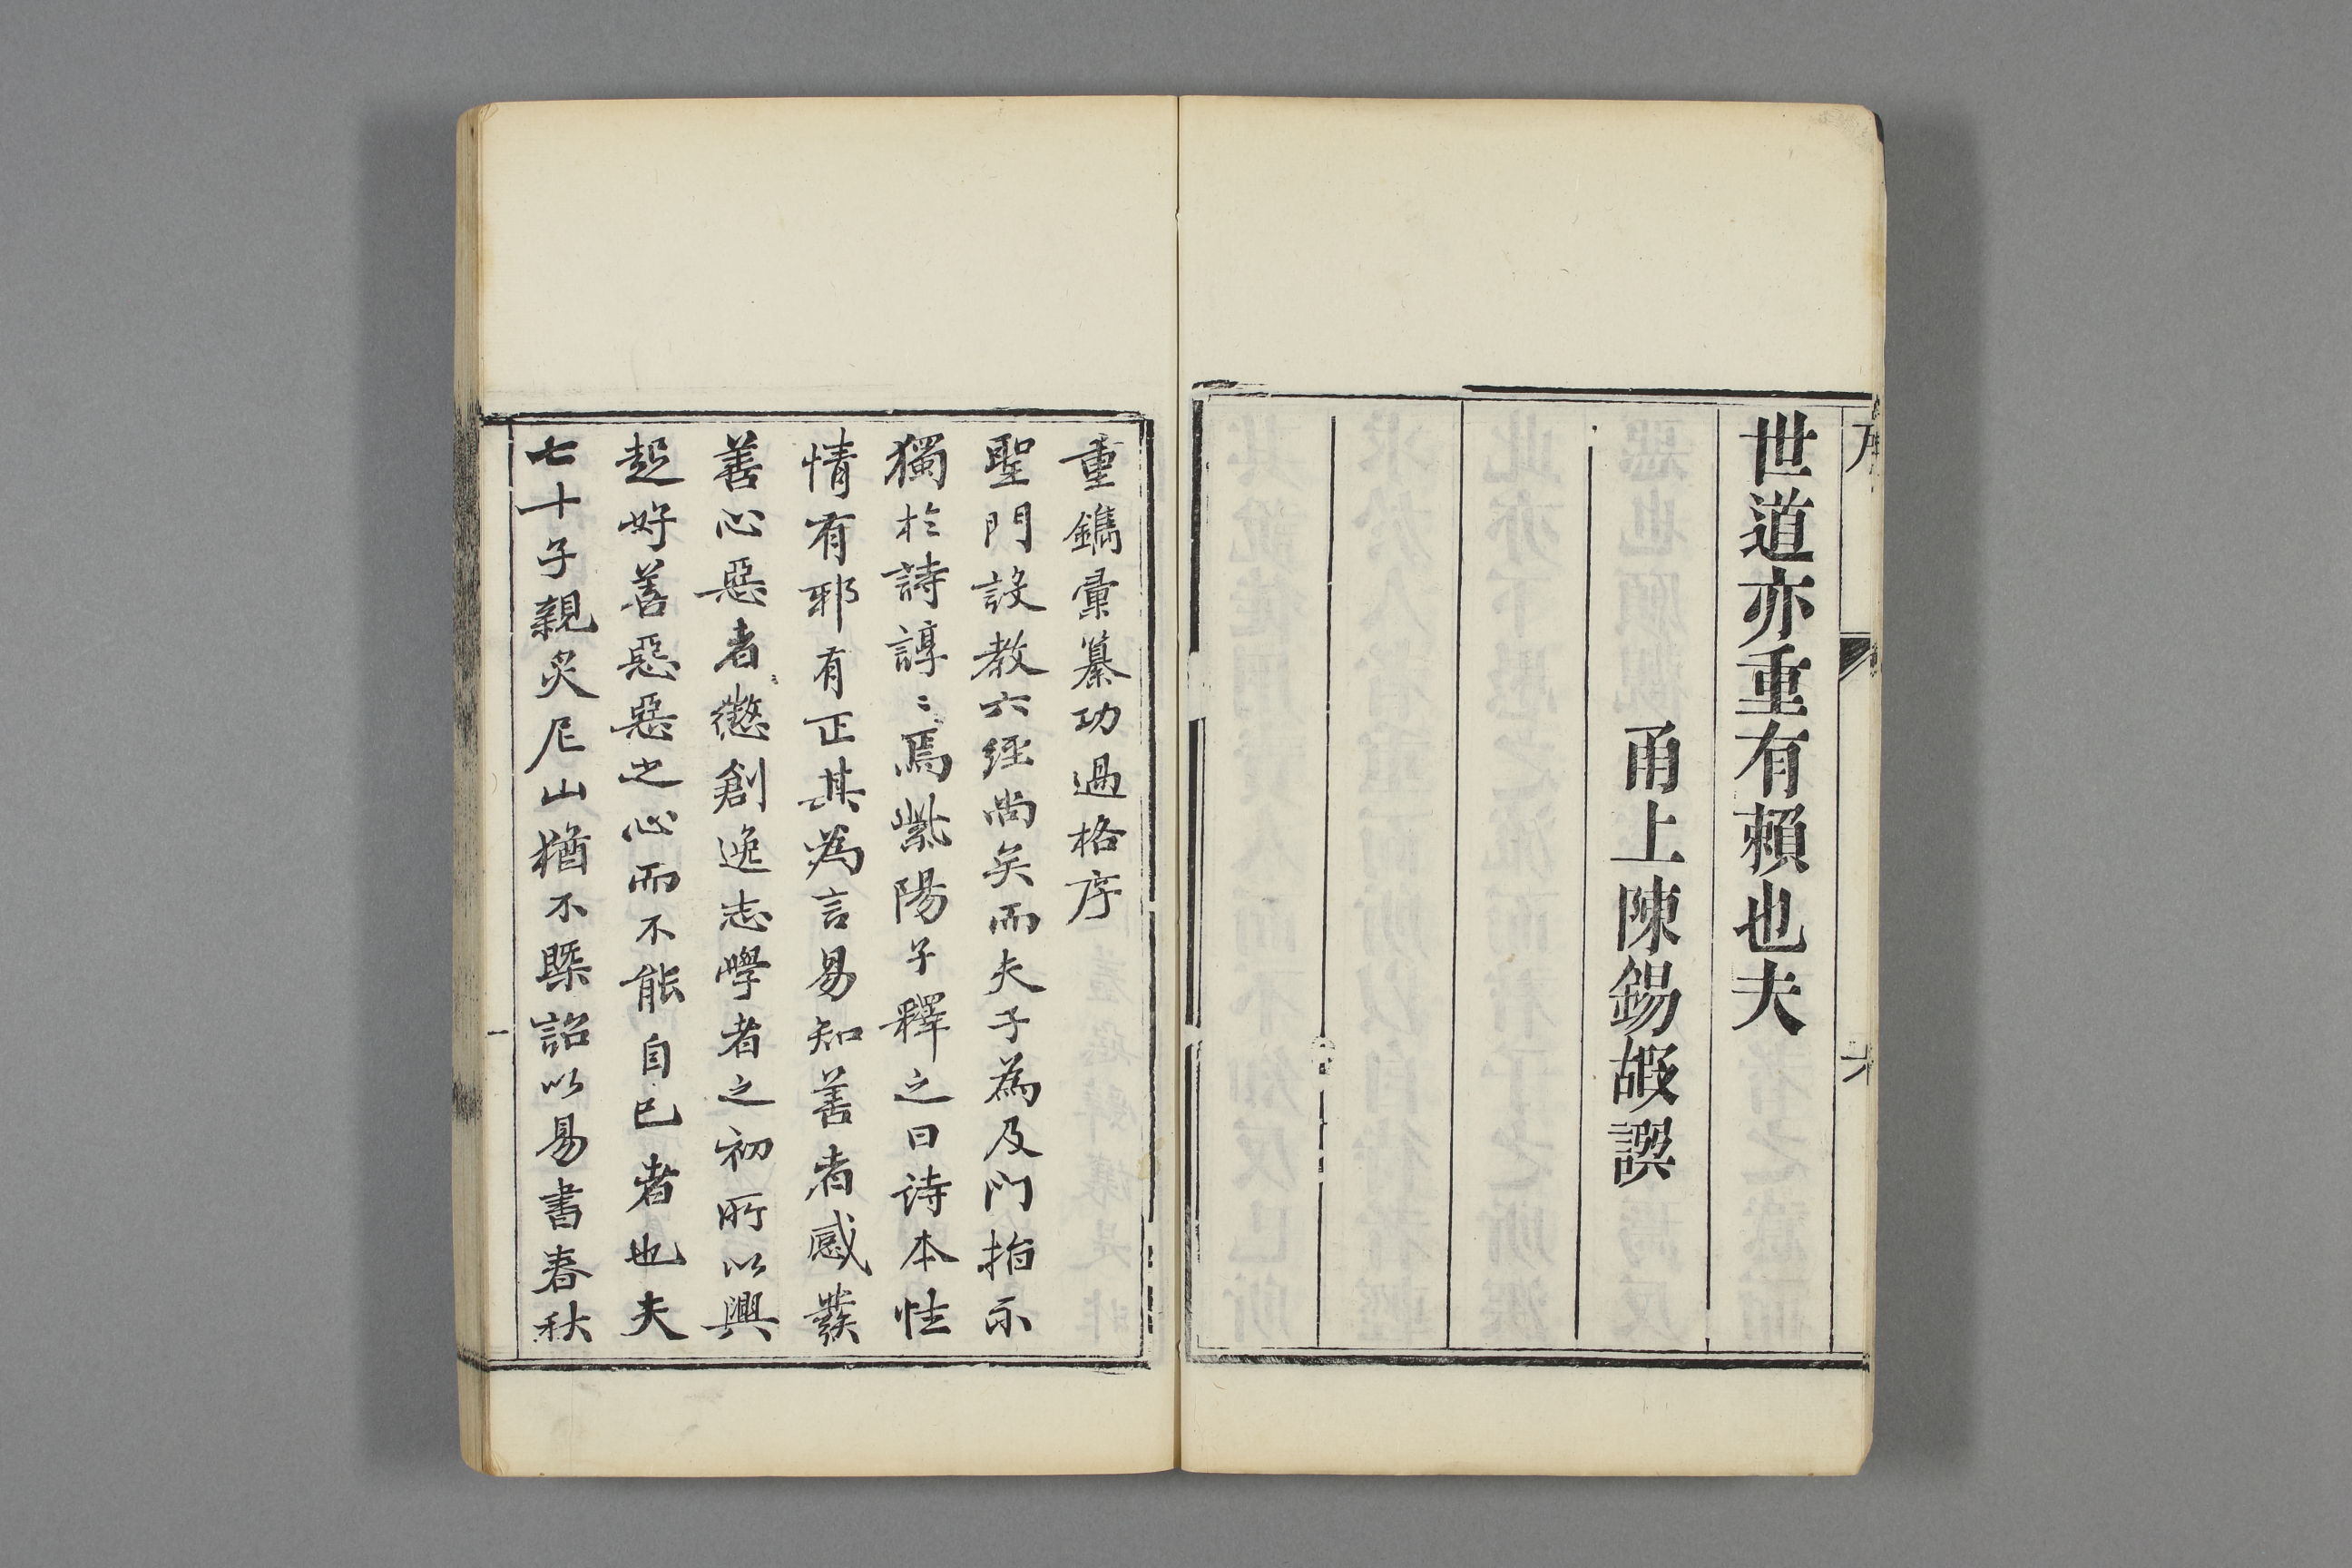 世道亦重有賴也夫
甬上陳錫嘏譔
重鐫彙纂功過格序
聖門設教六經尚矣而夫子為及門指示
獨於詩諄〻焉紫陽子釋之曰诗本性
情有邪有正其為言易知善者感發
善心惡者懲創逸志學者之初所以興
起好善惡惡之心而不能自已者也夫
七十子親炙尼山猶不槩詔以易書春秋
一